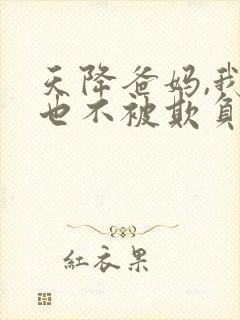 天降爸妈,我
也不被欺负
红衣果